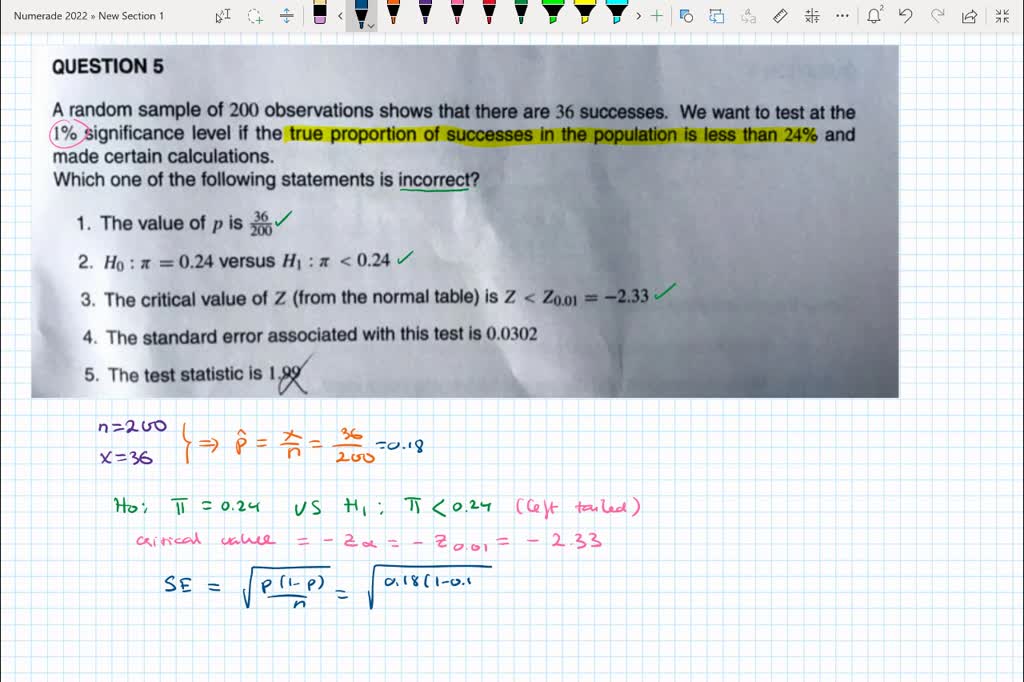 Numerade 2022 » New Section 1
QUESTION 5
A random sample of 200 observations shows that there are 36 successes. We want to test at the
1% significance level if the true proportion of successes in the population is less than 24% and
made certain calculations.
Which one of the following statements is incorrect?
1. The value of p is 36/200 ✓
2. H₀ : π = 0.24 versus H₁ : π < 0.24 ✓
3. The critical value of Z (from the normal table) is Z < Z₀.₀₁ = −2.33 ✓
4. The standard error associated with this test is 0.0302
5. The test statistic is 1.99
n=200
x=36
} ⇒ p̂ = x/n = 36/200 = 0.18
H₀: π = 0.24 VS H₁: π < 0.24 (left tailed)
critical value = - Zα = - Z0.01 = - 2.33
SE = √(p(1-p)/n) = √(0.18(1-0.1